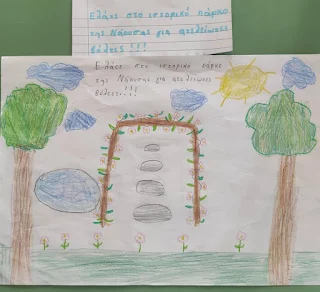 Ελάτε στο ιστορικό πάρκο
της Νάουσας για ατελείωτες
βόλτες!!!
Ελάτε στο ιστορικό πάρκο
της Νάουσας για ατελείωτες
βόλτες.!!!